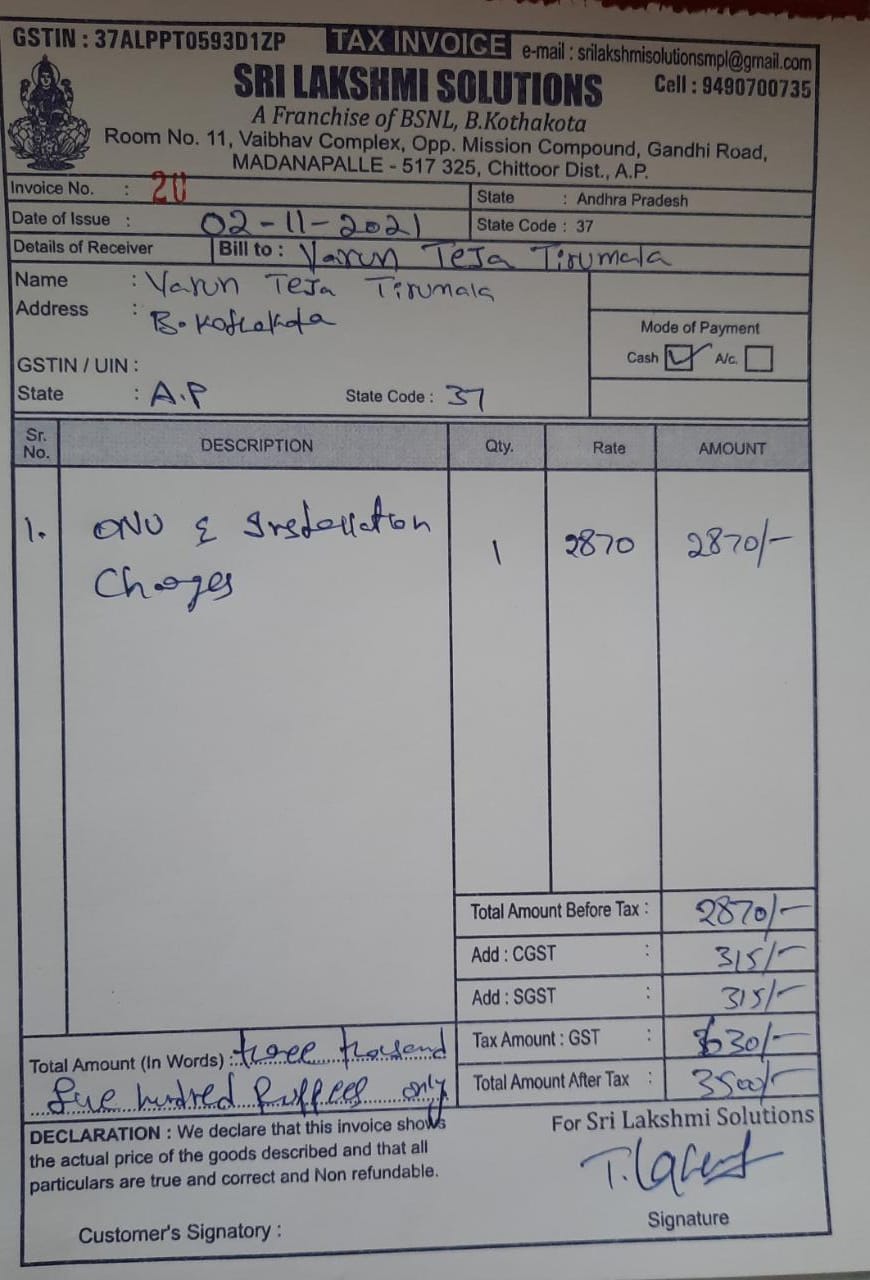 GSTIN : 37ALPPT0593D1ZP TAX INVOICE e-mail : srilakshmisolutionsmpl@gmail.com
SRI LAKSHMI SOLUTIONS Cell : 9490700735
A Franchise of BSNL, B.Kothakota
Room No. 11, Vaibhav Complex, Opp. Mission Compound, Gandhi Road,
MADANAPALLE - 517 325, Chittoor Dist., A.P.
Invoice No. : 20 State : Andhra Pradesh
Date of Issue : 02-11-2021 State Code : 37
Details of Receiver Bill to : Varun Teja Tirumala
Name : Varun Teja Tirumala
Address : B.Kothakota
Mode of Payment
Cash A/c.
GSTIN / UIN :
State : A.P State Code : 37
Sr. No. DESCRIPTION Qty. Rate AMOUNT
1. ONU & Installation 1 2870 2870/-
Charges
Total Amount Before Tax : 2870/-
Add : CGST : 315/-
Add : SGST : 315/-
Tax Amount : GST : 630/-
Total Amount After Tax : 3500/-
Total Amount (In Words) : three thousand
five hundred Ruppees only
DECLARATION : We declare that this invoice shows
the actual price of the goods described and that all
particulars are true and correct and Non refundable.
Customer's Signatory :
For Sri Lakshmi Solutions
Signature